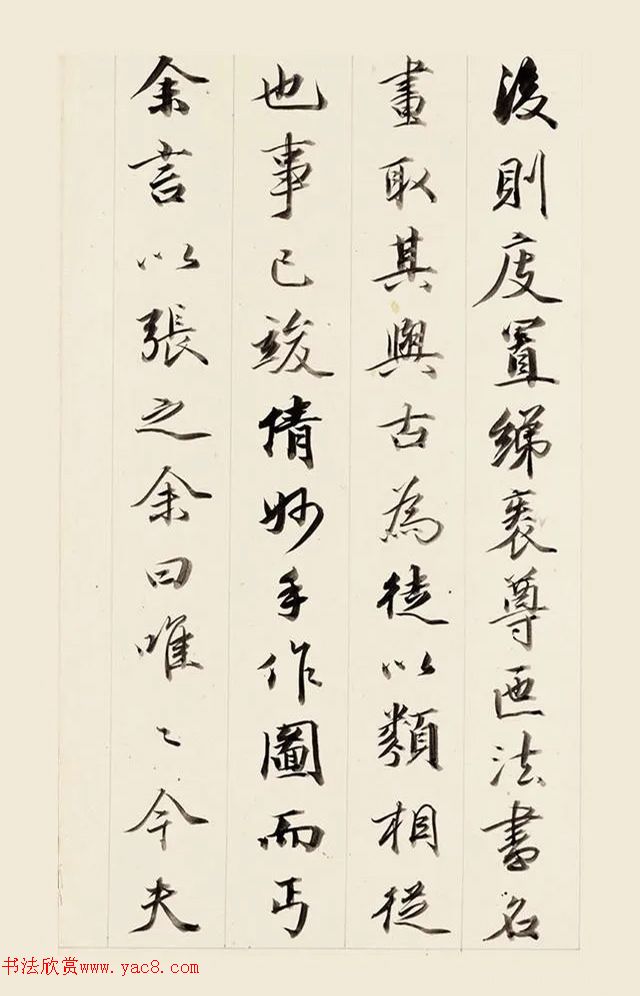 後則庋置綈袠尊匜法書名
畫取其與古為徒以類相從
也事已竣倩妙手作圖而丐
余言以張之余曰唯々今夫
书法欣赏www.yac8.com